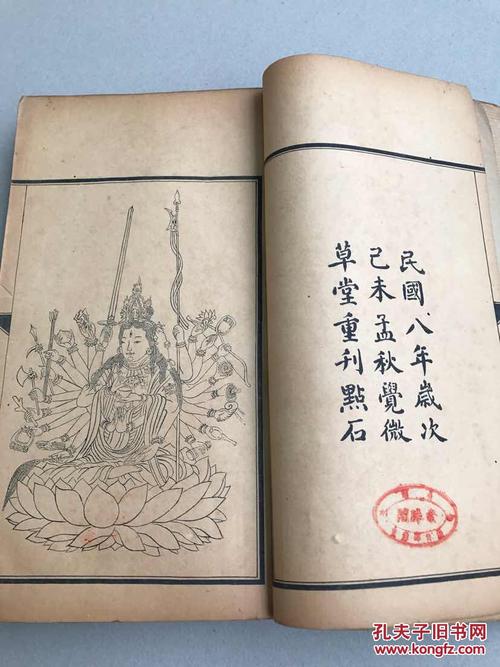 民國八年歲次
己未孟秋覺微
草堂重刊點石
孔夫子旧书网
www.kongfz.com